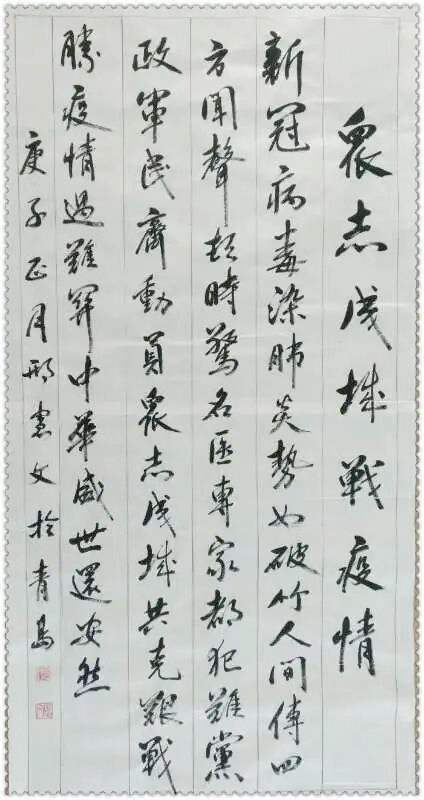 眾志成城戰疫情
新冠病毒染肺炎勢如破竹人间傳四
方聞聲頓時驚名医專家都犯難黨
政軍民齊動員眾志成城共克艱戰
勝疫情過難関中華盛世還安然
庚子正月邢憲文於青島